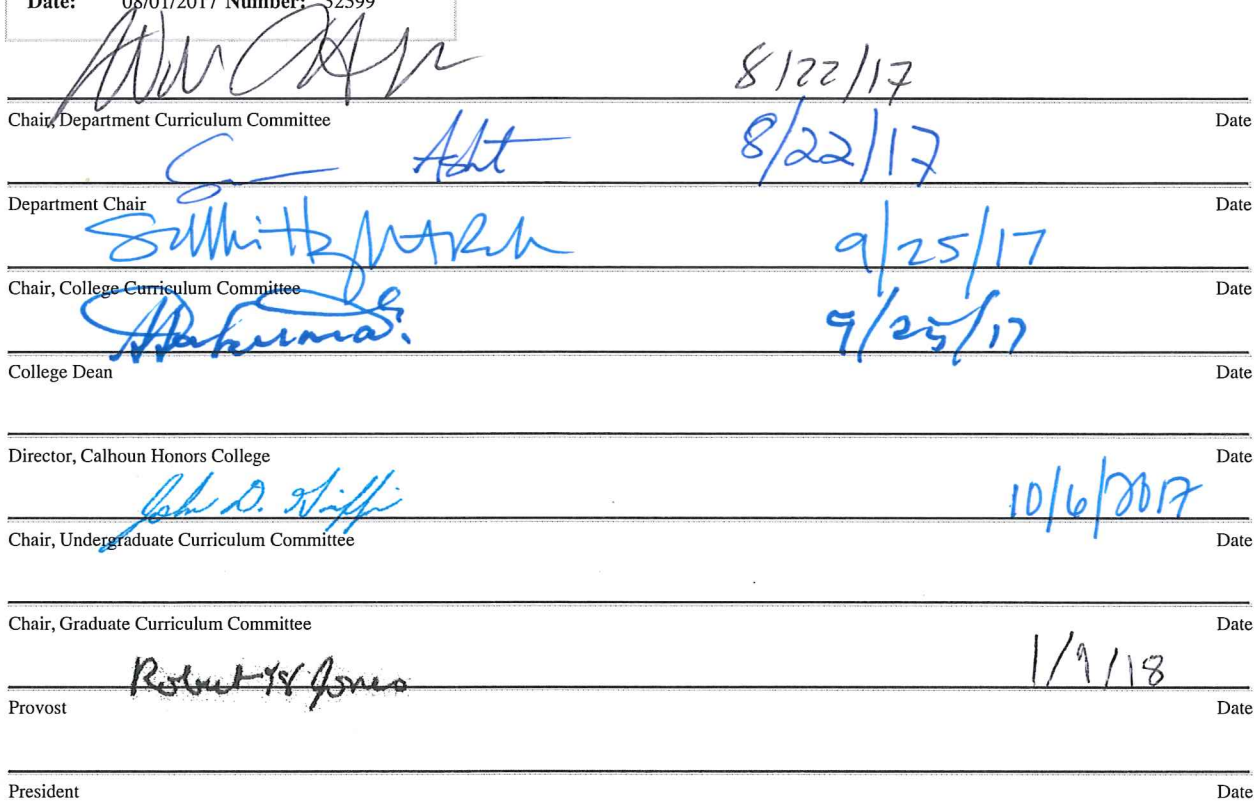 Date: 08/01/2017 Number: 32399
8/22/17
Chair, Department Curriculum Committee Date
8/22/17
Department Chair Date
9/25/17
Chair, College Curriculum Committee Date
9/25/17
College Dean Date
Director, Calhoun Honors College Date
John D. Griffin 10/6/2017
Chair, Undergraduate Curriculum Committee Date
Chair, Graduate Curriculum Committee Date
Robert H Jones 1/9/18
Provost Date
President Date